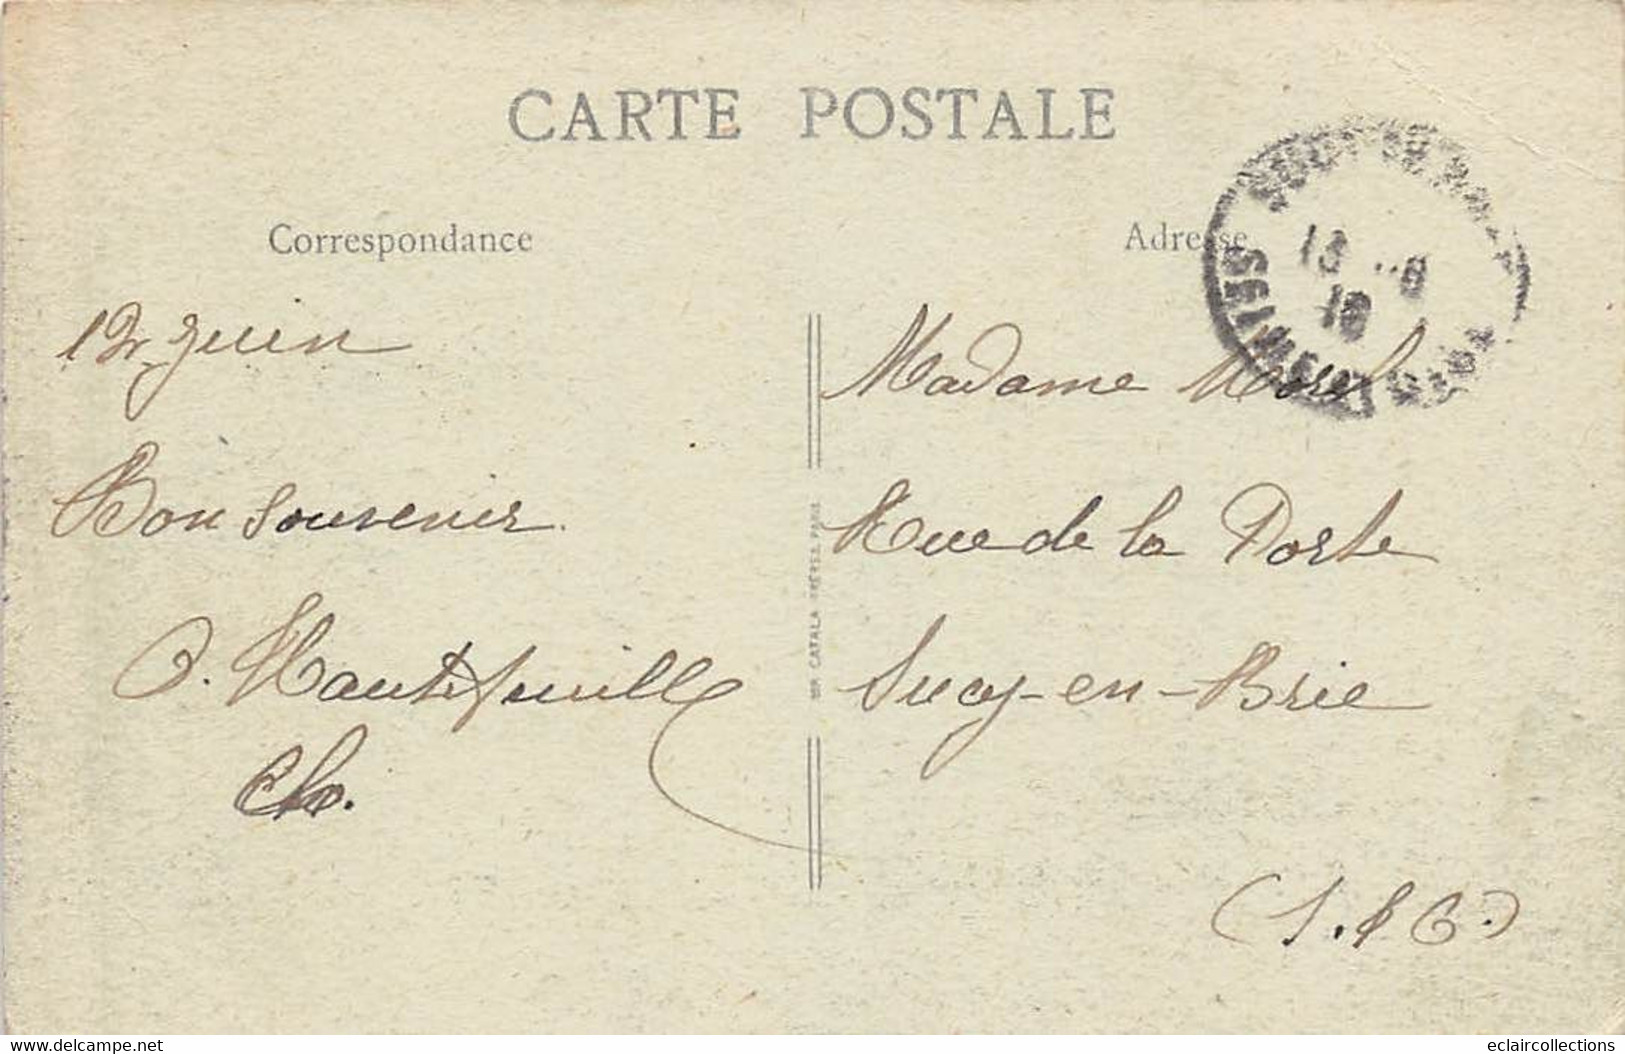 CARTE POSTALE
Correspondance
Adresse
12 juin
Bon souvenir
O. Hautefeuille
Ch.
Madame Morel
Rue de la Porte
Sucy-en-Brie
(S. & O.)
IMP. CATALA FRÈRES, PARIS
13
www.delcampe.net
eclaircollections